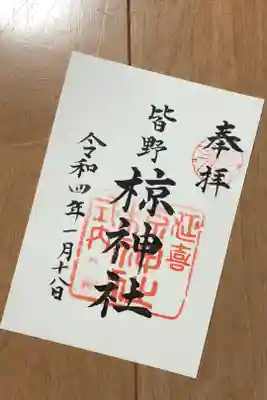 奉拝
皆野
椋神社
令和四年一月十八日
延喜
式内